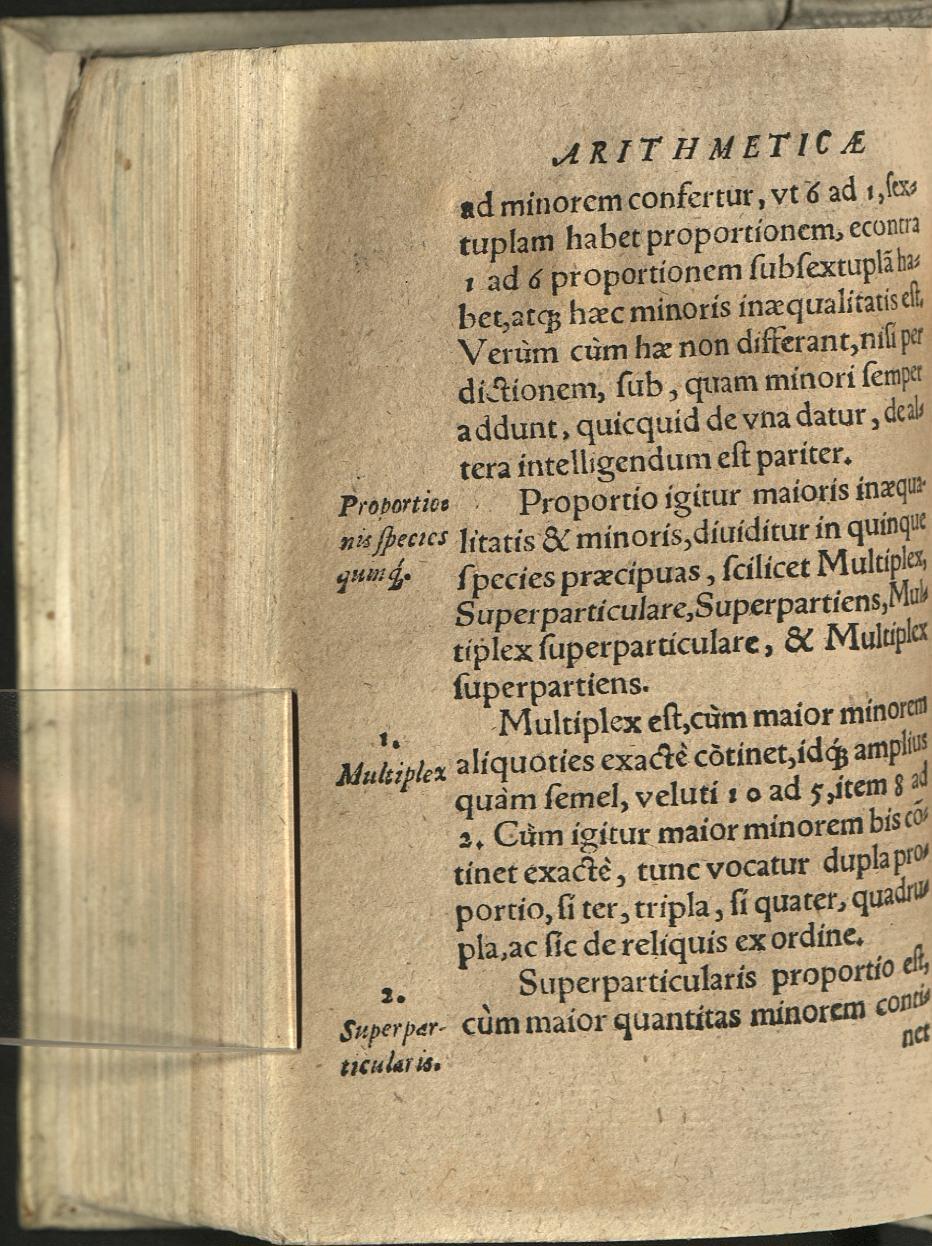 ARITHMETICÆ
ad minorem confertur, vt 6 ad 1, ſex-
tuplam habet proportionem, econtra
1 ad 6 proportionem ſubſextuplã ha-
bet, atqꝫ hæc minoris inæqualitatis eſt.
Verùm cùm hæ non differant, niſi per
dictionem, ſub, quam minori ſemper
addunt, quicquid de vna datur, de al-
tera intelligendum eſt pariter.
Proportio-
nis ſpecies
quinq́.
Proportio igitur maioris inæqua-
litatis & minoris, diuiditur in quinque
ſpecies præcipuas, ſcilicet Multiplex,
Superparticulare, Superpartiens, Mul-
tiplex ſuperparticulare, & Multiplex
ſuperpartiens.
1.
Multiplex
Multiplex eſt, cùm maior minorem
aliquoties exactè cõtinet, idq́ꝫ amplius
quàm ſemel, veluti 10 ad 5, item 8 ad
2. Cùm igitur maior minorem bis cõ-
tinet exactè, tunc vocatur dupla pro-
portio, ſi ter, tripla, ſi quater, quadru-
pla, ac ſic de reliquis ex ordine.
2.
Superpar-
ticularis.
Superparticularis proportio eſt,
cùm maior quantitas minorem conti-
net